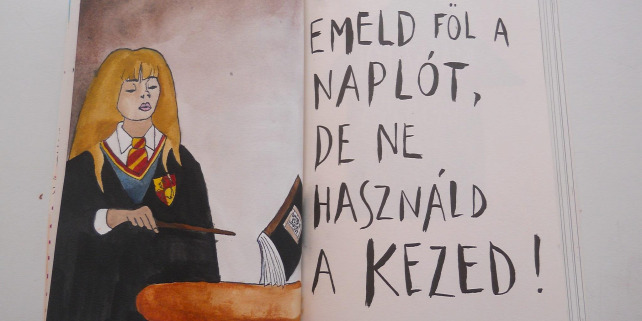 EMELD FÖL A
NAPLÓT,
DE NE
HASZNÁLD
A KEZED!